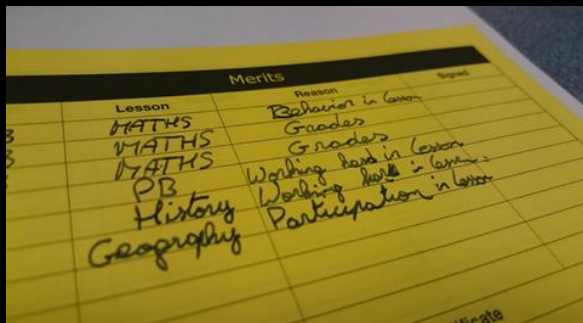 Merits
Lesson Reason Signed
MATHS Behavior in lesson
MATHS Grades
MATHS Grades
PB Working hard in lesson
History Working hard in lesson.
Geography Participation in lesson